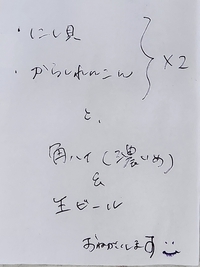 ・にし貝
・からしれんこん } ×2
と、
角ハイ(濃いめ)
&
生ビール
おねがいします